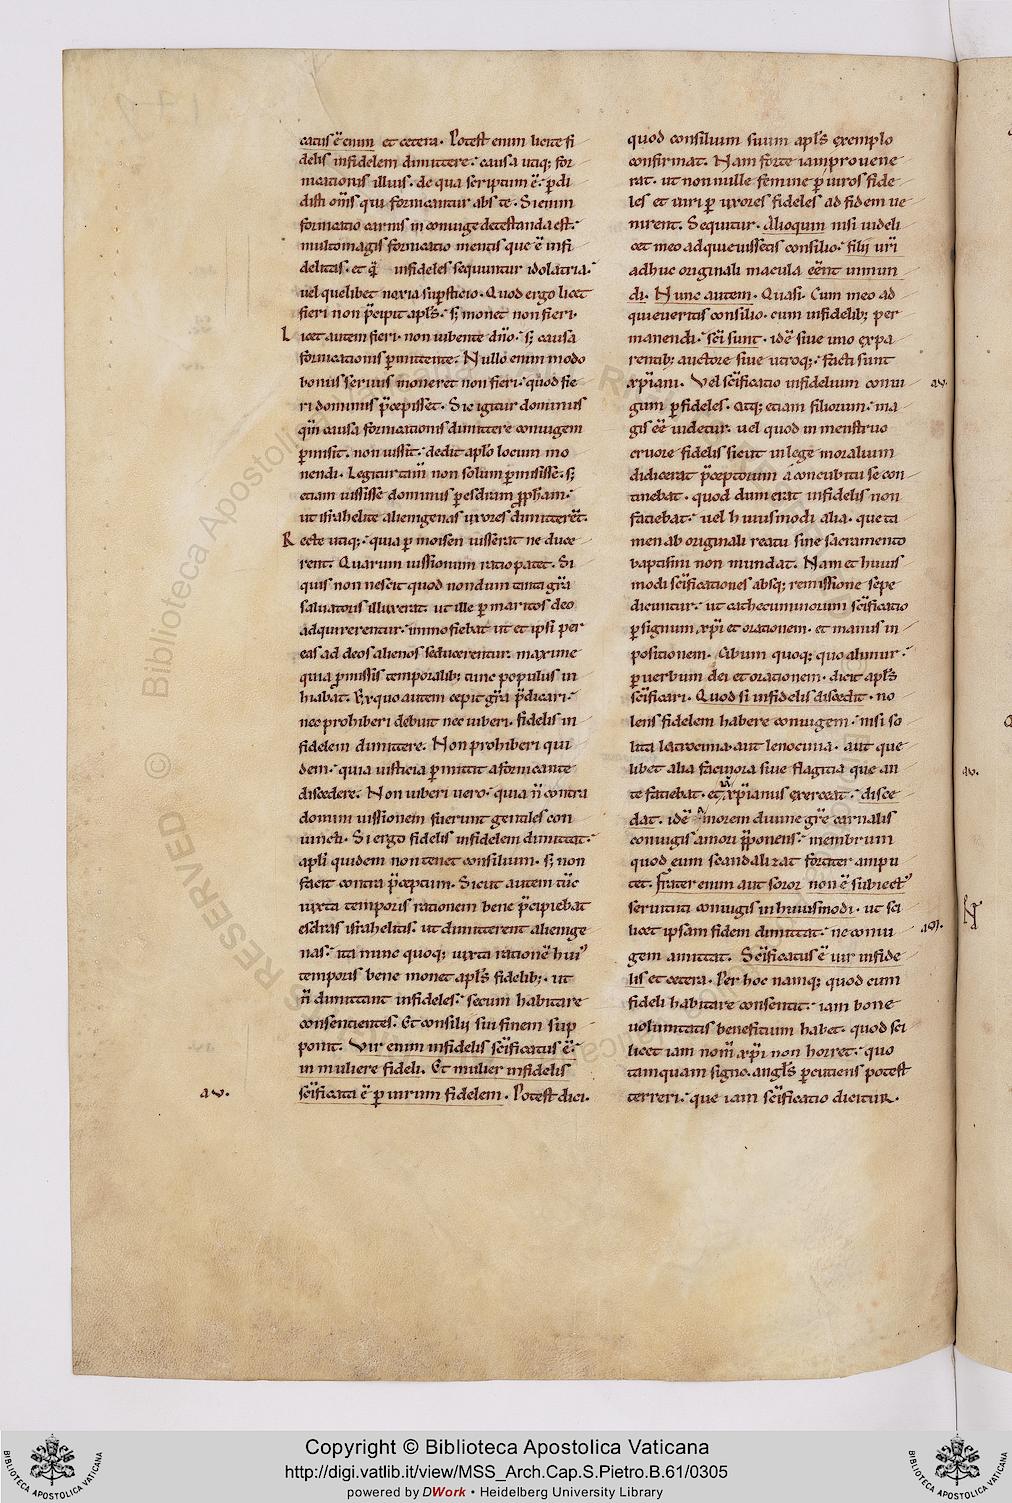 catus ē enim et cetera. Potest enim licite fi
delis infidelem dimittere. causa utiq; for
nicationis illius. de qua scriptum ē. p̄di
disti om̄s qui fornicantur abs te. Si enim
fornicatio carnis in coniuge detestanda est.
multo magis fornicatio mentis que ē infi
delitas. et q̄ infideles sequuntur idolatria.
uel quelibet noxia sup̄stitio. Quod ergo licet
fieri non p̄cipit apl̄s. s; monet non fieri.
Licet autem fieri. non iubente dn̄o. s; causa
fornicationis p̄mittente. Nullo enim modo
bonus seruus moneret non fieri. quod fie
ri dominus p̄cepisset. Sic igitur dominus
qm̄ causa fornicationis dimittere coniugem
p̄misit. non iussit. dedit apl̄o locum mo
nendi. Legitur tam̄ non solum p̄misisse. s;
etiam iussisse dominus p̄ esdram pp̄ham.
ut isrl̄ahelite alienigenas uxores dimitterēt.
Recte utiq; quia p̄ moisen iusserat ne duce
rent. Quarum iussionum ratio patet. Si
quis non nescit quod nondum tanta gr̄a
saluatoris illuxerat. ut ille p̄ maritos deo
adquirerentur. immo fiebat ut et ipsi per
eas ad deos alienos seducerentur. maxime
quia p̄missis temporalib; tunc populus in
hiabat. Ex quo autem cepit gr̄a p̄dicari.
nec prohiberi debuit nec iuberi. fidelis in
fidelem dimittere. Non prohiberi qui
dem. quia iusticia p̄mittit a fornicante
discedere. Non iuberi uero. quia n̄ contra
domini iussionem fuerunt gentiles con
iuncti. Si ergo fidelis infidelem dimittat.
apl̄i quidem non tenet consilium. s; non
facit contra p̄ceptum. Sicut autem tūc
iuxta temporis rationem bene p̄cipiebat
esdras isrl̄ahelitis. ut dimitterent alienige
nas. ita nunc quoq; iuxta rationē hui'
temporis bene monet apl̄s fidelib;. ut
n̄ dimittant infideles. secum habitare
consentientes. Et consilii sui finem sup
ponit. Vir enim infidelis sc̄ificatus ē.
in muliere fideli. Et mulier infidelis
av.
sc̄ificata ē p̄ uirum fidelem. Potest dici.
quod consilium suum apl̄s exemplo
confirmat. Nam forte iam proueue
rat. ut non nulle femine p̄ uiros fide
les et uiri p̄ uxores fideles ad fidem ue
nirent. Sequitur. Alioquin nisi uideli
cet meo adquieuissetis consilio. filij uri
adhuc originali macula eēnt inmun
di. Nunc autem. Quasi. Cum meo ad
quieueritis consilio. cum infidelib; per
manendi. sc̄i sunt. idē siue uno ex pa
rentib; auctore siue utroq;. facti sunt
xp̄iani. Vel sc̄ificatio infidelium coniu
av.
gum p̄ fideles. atq; etiam filiorum. ma
gis eē uidetur. uel quod in menstruo
cruore fidelis sicut in lege moralium
didicerat p̄ceptorum a concubitu se con
tinebat. quod dum erat infidelis non
faciebat. uel huiusmodi alia. que ta
men ab originali reatu sine sacramento
baptismi non mundat. Nam et huius
modi sc̄ificationes absq; remissione sepe
dicuntur. ut cathecuminorum sc̄ificatio
p̄ signum xp̄i et orationem. et manus in
positionem. Cibum quoq; quo alimur.
p̄ uerbum dei et orationem. dicit apl̄s
sc̄ificari. Quod si infidelis discedit. no
lens fidelem habere coniugem. nisi so
lita latrocinia. aut lenocinia. aut que
libet alia facinora siue flagitia que an
av.
te faciebat. et xp̄ianus exerceat. disce
dat. idē amorem diuine gr̄e carnalis
coniugis amori p̄ponens. membrum
quod eum scandalizat fortiter ampu
tet. Frater enim aut soror non ē subiect'
seruituti coniugis in huiusmodi. ut sci
licet ipsam fidem dimittat. ne coniu
gem amittat. Sc̄ificatus ē uir infide
lis et cetera. Per hoc namq; quod cum
fideli habitare consentit. iam bone
uoluntatis benefitium habet. quod sci
licet iam nom̄ xp̄i non horret. quo
tamquam signo angl̄s p̄cutiens potest
terreri. que iam sc̄ificatio dicitur.
Copyright © Biblioteca Apostolica Vaticana
http://digi.vatlib.it/view/MSS_Arch.Cap.S.Pietro.B.61/0305
powered by DWork • Heidelberg University Library
BIBLIOTECA APOSTOLICA VATICANA
BIBLIOTECA APOSTOLICA VATICANA